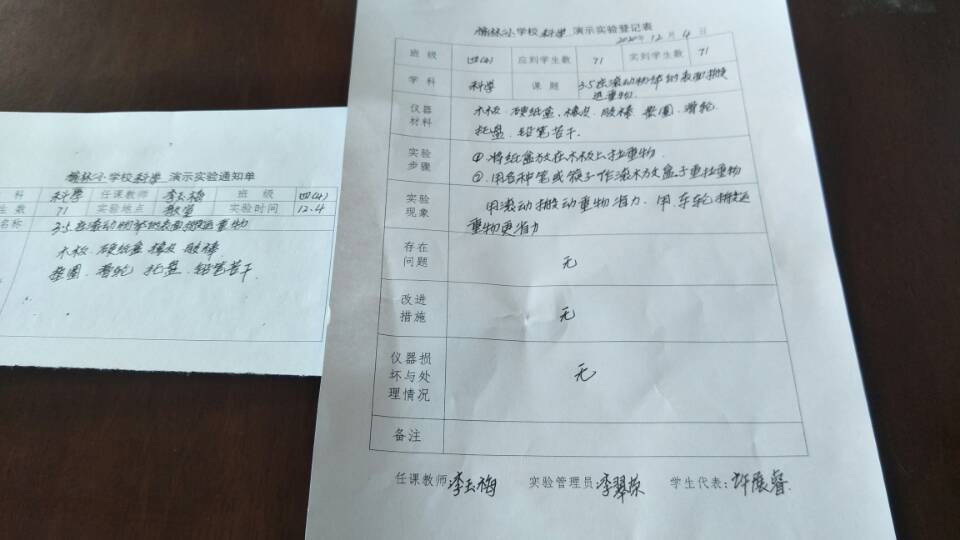 小学校科学 演示实验通知单
科 科学 任课教师 李玉梅 班 级 四(4)
生数 71 实验地点 教室 实验时间 12.4
名称 3.5在滚动物体的表面搬运重物
木板 硬纸盒 橡皮 胶棒
垫圈 滑轮 托盘 铅笔若干.
小学校科学 演示实验登记表
2020年12月4日
班 级 四(4) 应到学生数 71 实到学生数 71
学 科 科学 课 题 3.5在滚动物体的表面搬
运重物.
仪器
材料
木板 硬纸盒、橡皮、胶棒 垫圈、滑轮
托盘、铅笔若干.
实验
步骤
①.将纸盒放在木板上拉重物.
②.用各种笔或筷子作滚木放盒子重拉重物
实验
现象
用滚动搬动重物省力、用车轮搬运
重物更省力
存在
问题
无
改进
措施
无
仪器损
坏与处
理情况
无
备注
任课教师 李玉梅 实验管理员 李翠 学生代表: 许展睿